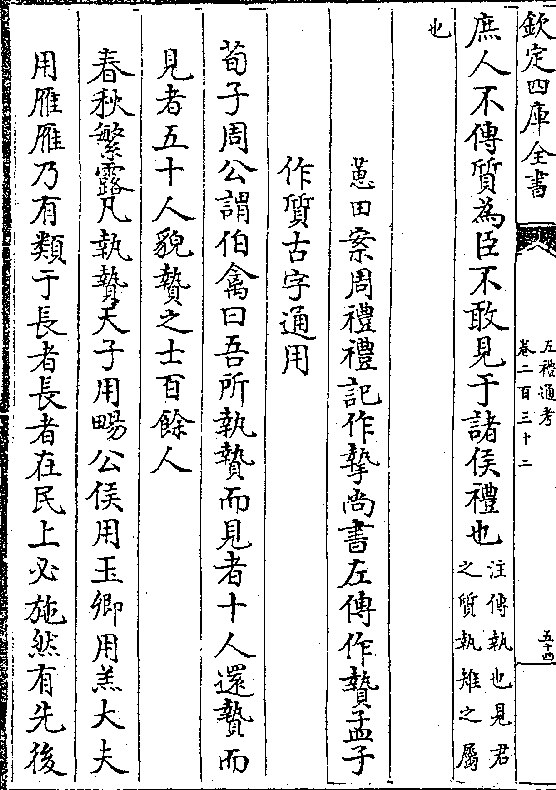 欽定四庫全書
五禮通考
卷二百三十二
五十四
庶人不傳質為臣不敢見于諸侯禮也注傳執也見君之質執雉之屬
也
蕙田案周禮禮記作摯尚書左傳作贄孟子
作質古字通用
荀子周公謂伯禽曰吾所執贄而見者十人還贄而
見者五十人貌贄之士百餘人
春秋繁露凡執贄天子用暢公侯用玉卿用羔大夫
用雁雁乃有類于長者長者在民上必施然有先後